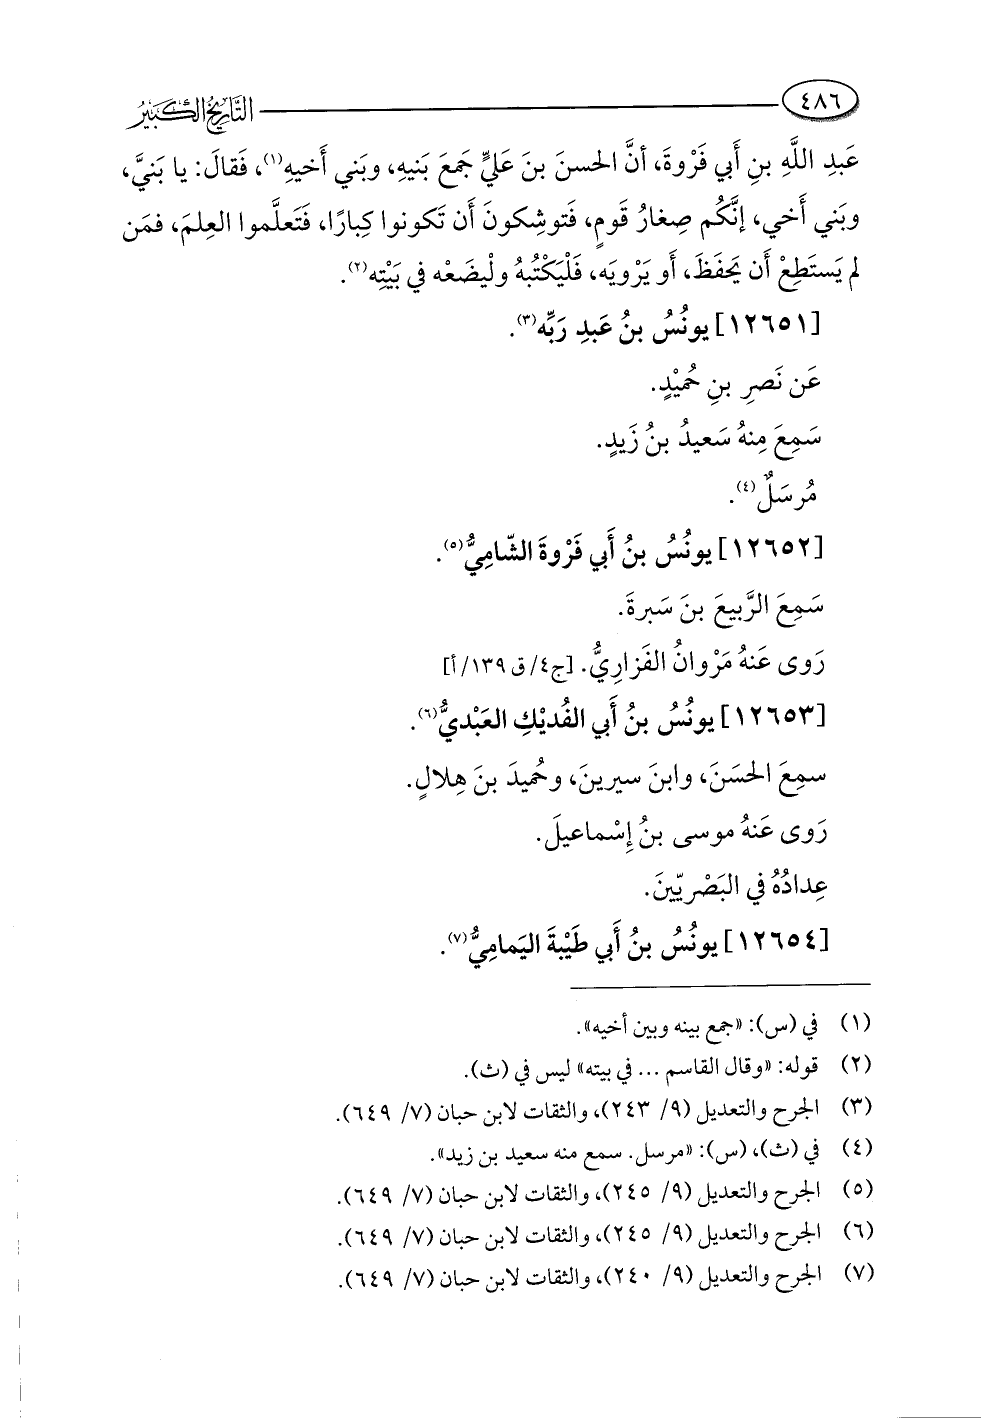 ٤٨٦
التَّارِيخُ الكَبِيرُ
عَبدِ اللَّهِ بنِ أَبي فَرْوةَ، أنَّ الحسنَ بنَ عَليٍّ جَمعَ بَنيهِ، وبَني أَخيهِ(١)، فَقالَ: يا بَنيَّ،
وبَني أَخي، إنَّكُم صِغارُ قَومٍ، فَتوشِكونَ أَن تَكونوا كِبارًا، فَتَعلَّموا العِلمَ، فمَن
لم يَستَطِعْ أَن يَحفَظَ، أَو يَرْويَه، فَلْيَكْتُبهُ ولْيضَعْه في بَيْتِه(٢).
[١٢٦٥١] يونُسُ بنُ عَبدِ رَبِّه(٣).
عَن نَصرِ بنِ حُميْدٍ.
سَمِعَ مِنهُ سَعيدُ بنُ زَيدٍ.
مُرسَلٌ(٤).
[١٢٦٥٢] يونُسُ بنُ أَبي فَروةَ الشّامِيُّ(٥).
سَمِعَ الرَّبيعَ بنَ سَبرةَ.
رَوى عَنهُ مَرْوانُ الفَزاريُّ. [ج٤/ ق ١٣٩/ أ]
[١٢٦٥٣] يونُسُ بنُ أَبي الفُديْكِ العَبْديُّ(٦).
سمِعَ الحسَنَ، وابنَ سيرينَ، وحُميدَ بنَ هِلالٍ.
رَوى عَنهُ موسى بنُ إسْماعيلَ.
عِدادُهُ في البَصْريّينَ.
[١٢٦٥٤] يونُسُ بنُ أَبي طَيْبةَ اليَماميُّ(٧).
(١) في (س): «جمع بينه وبين أخيه».
(٢) قوله: «وقال القاسم ... في بيته» ليس في (ث).
(٣) الجرح والتعديل (٩/ ٢٤٣)، والثقات لابن حبان (٧/ ٦٤٩).
(٤) في (ث)، (س): «مرسل. سمع منه سعيد بن زيد».
(٥) الجرح والتعديل (٩/ ٢٤٥)، والثقات لابن حبان (٧/ ٦٤٩).
(٦) الجرح والتعديل (٩/ ٢٤٥)، والثقات لابن حبان (٧/ ٦٤٩).
(٧) الجرح والتعديل (٩/ ٢٤٠)، والثقات لابن حبان (٧/ ٦٤٩).